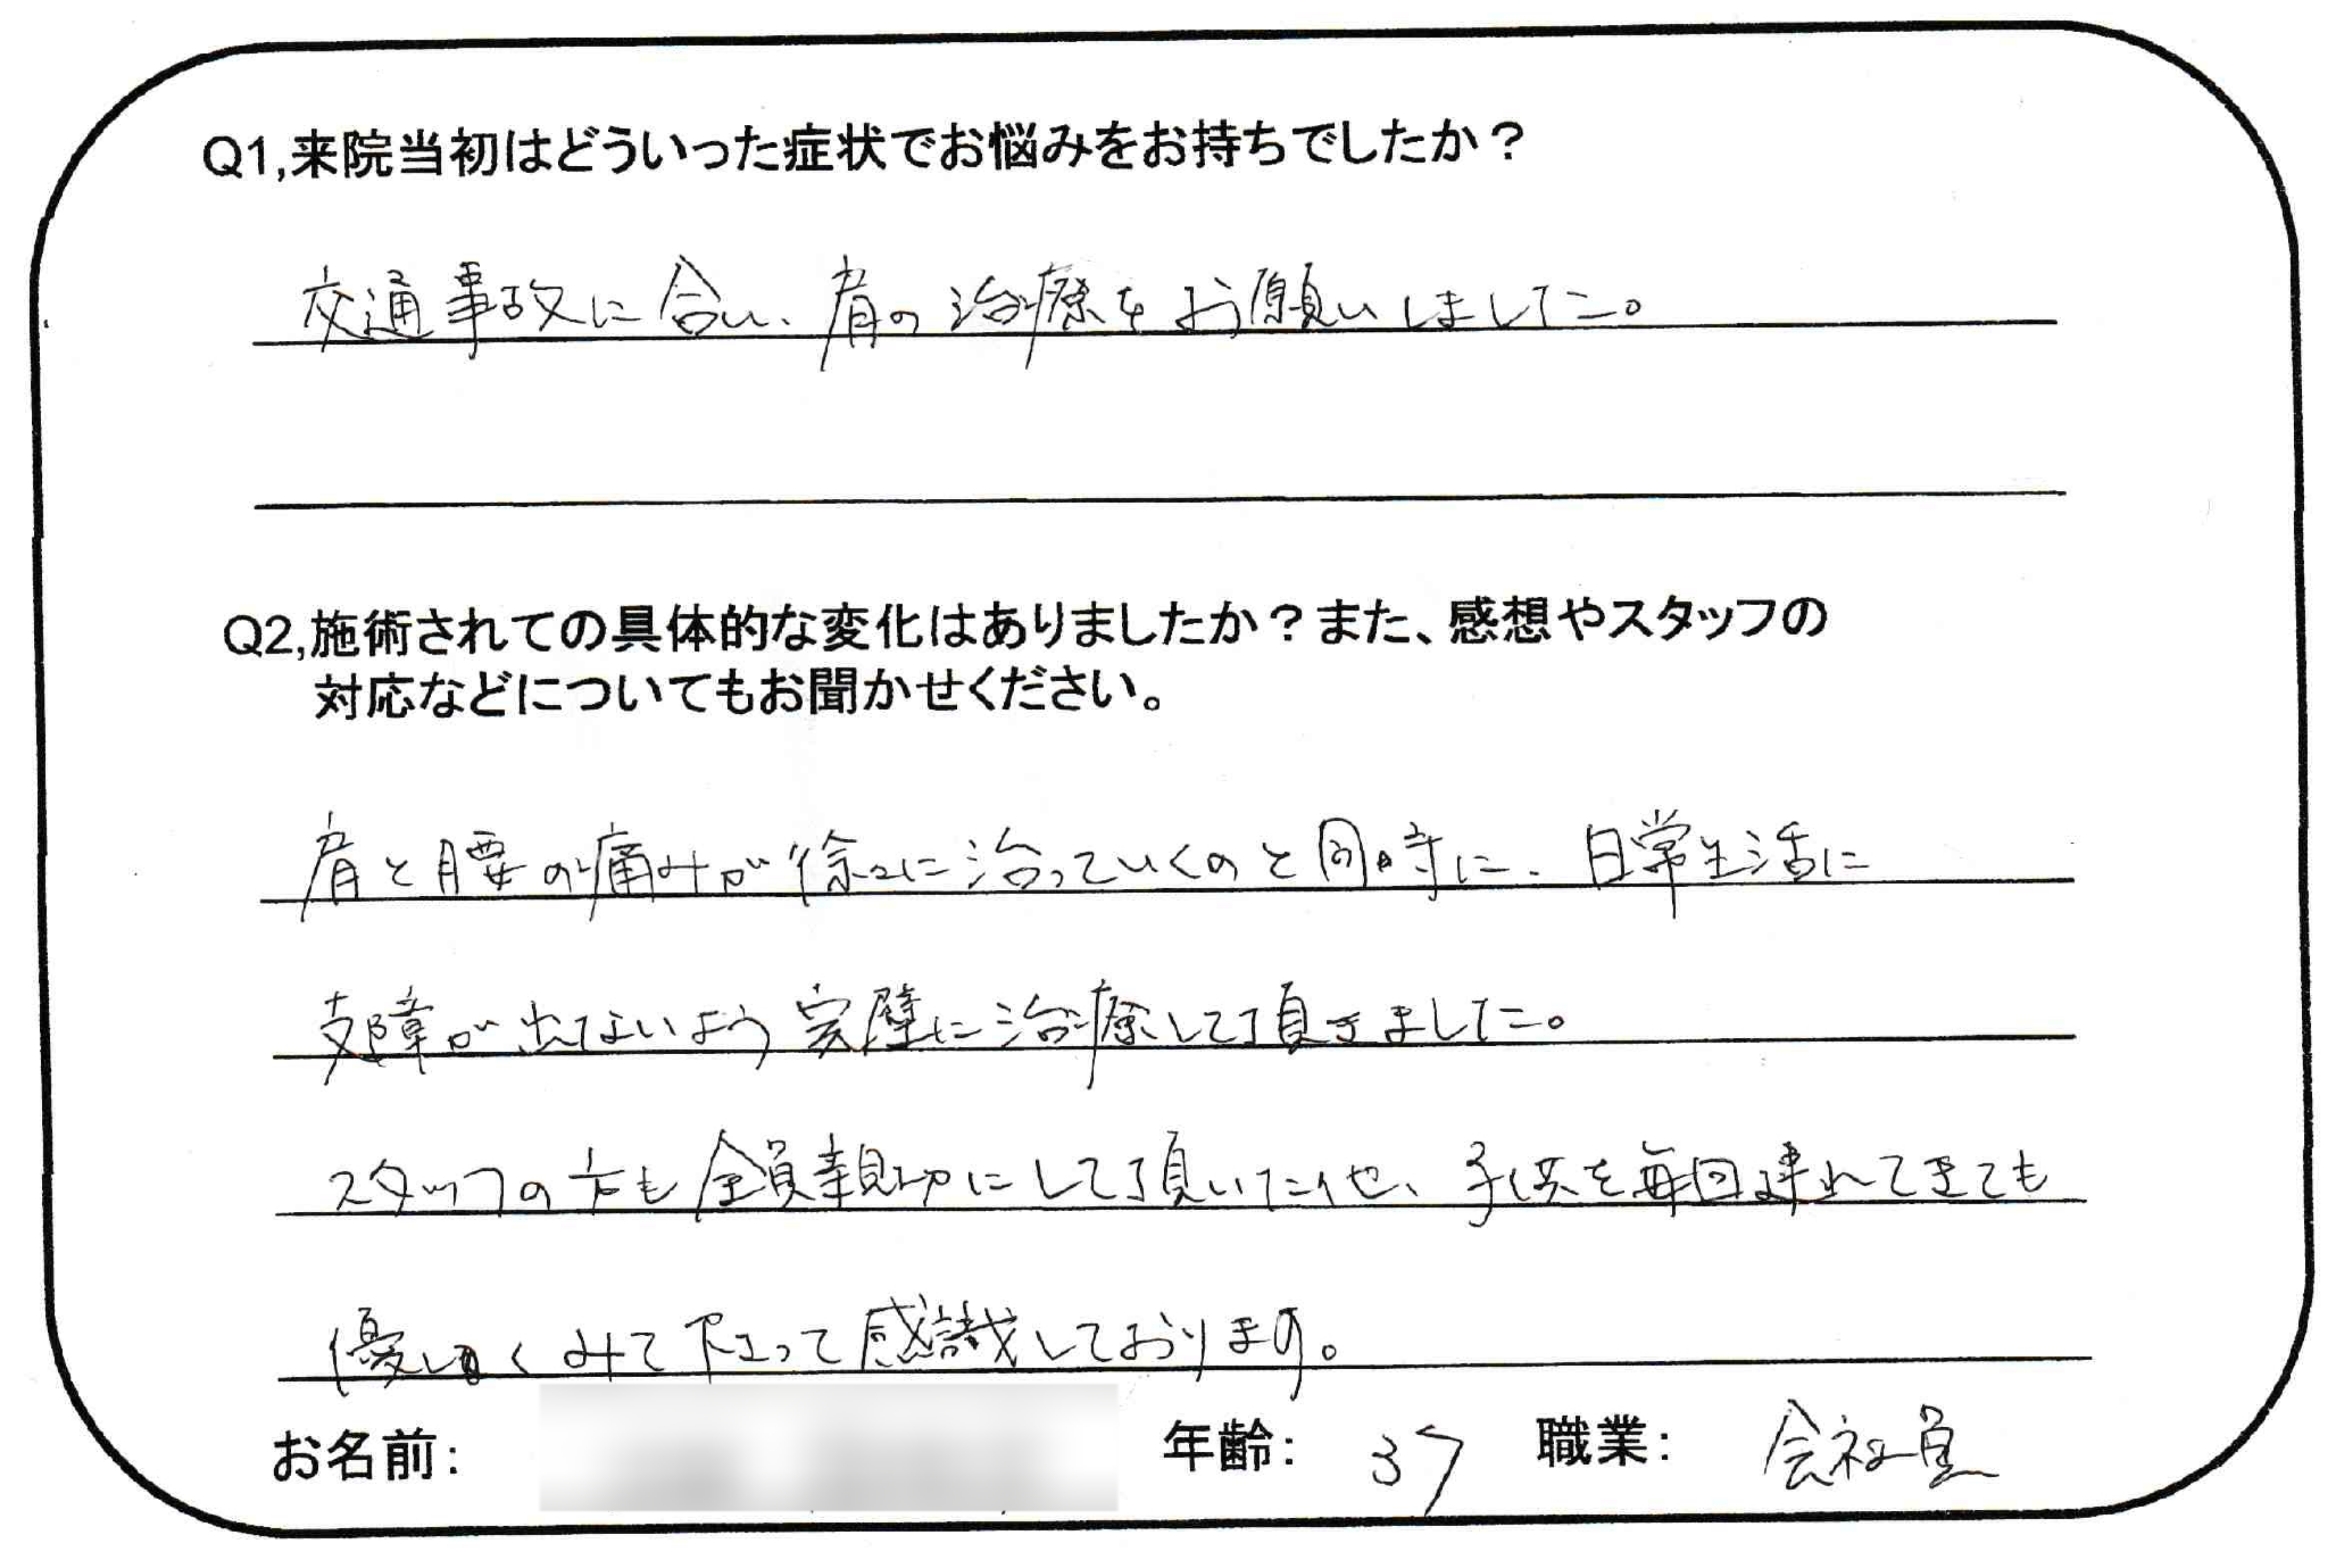 Q1,来院当初はどういった症状でお悩みをお持ちでしたか？
交通事故に合い、肩の治療をお願いしました。
Q2,施術されての具体的な変化はありましたか？また、感想やスタッフの
対応などについてもお聞かせください。
肩と腰の痛みが徐々に治っていくのと同時に、日常生活に
支障が出てないよう完璧に治療して頂きました。
スタッフの方も全員親切にして頂いた他、子供を毎回連れてきても
優しくみて下さって感謝しております。
お名前：
年齢： 37 職業： 会社員